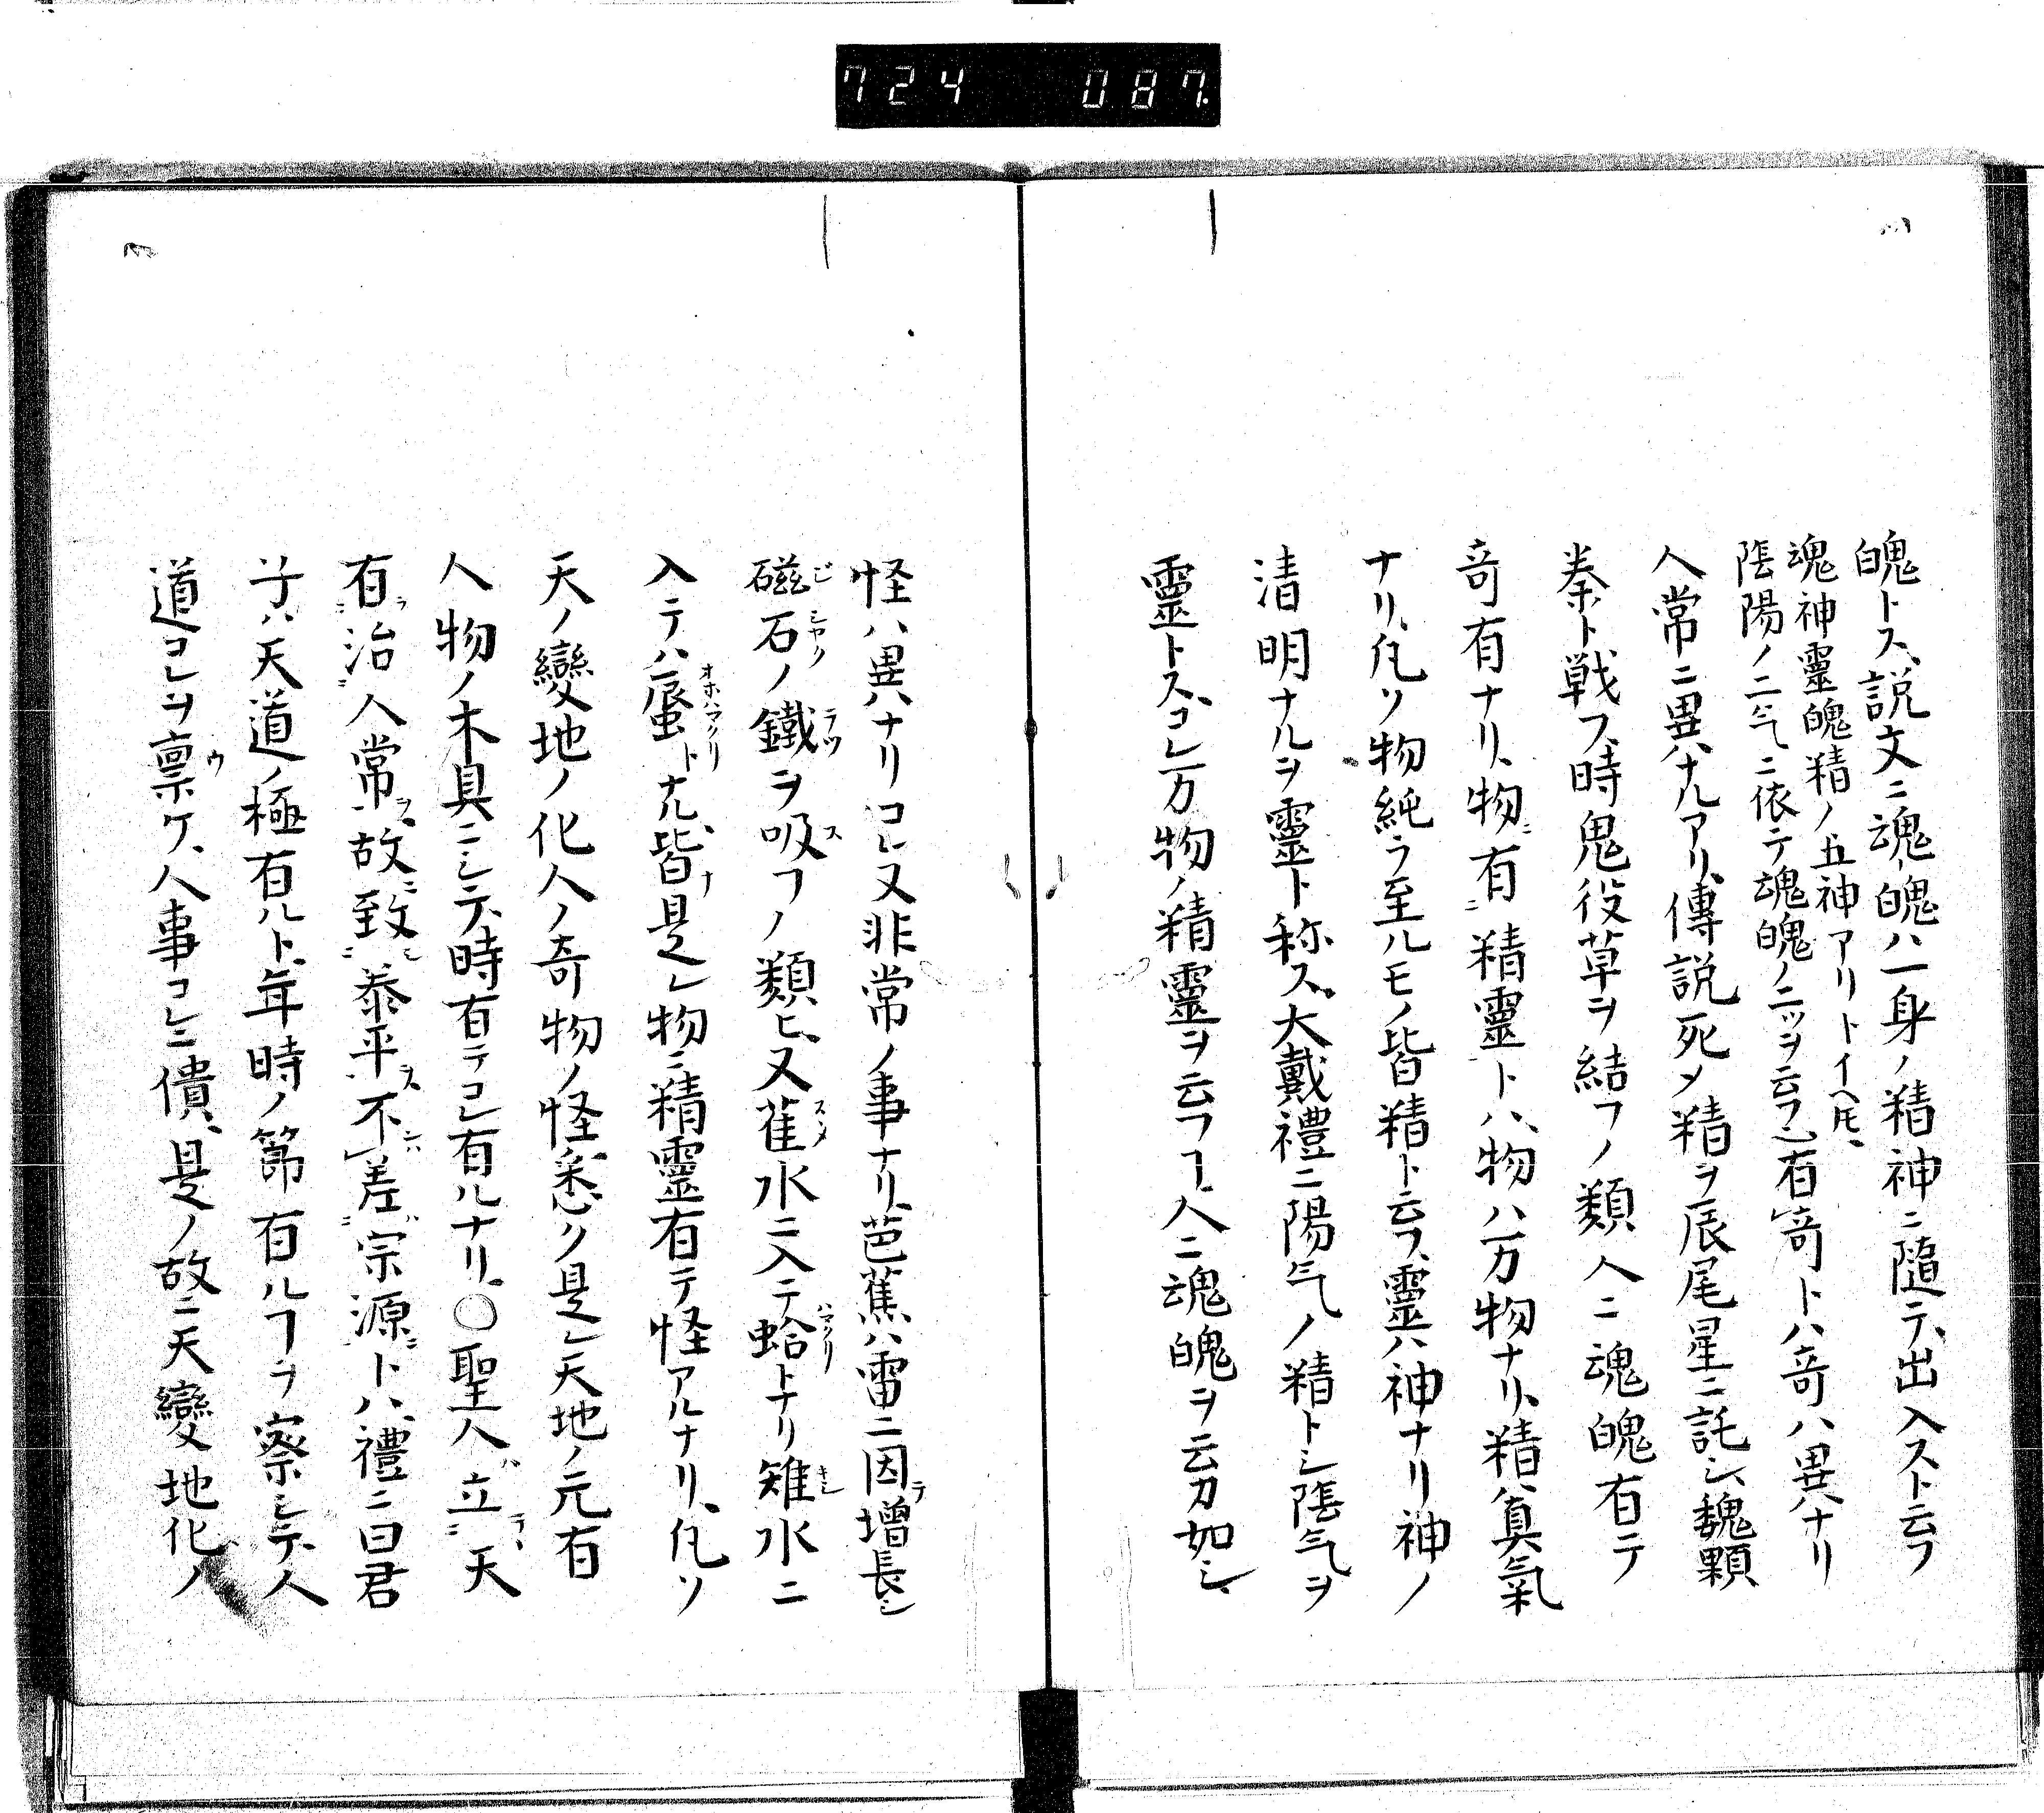 724 087.
魄トス、説文ニ魂魄ハ一身ノ精神ニ隨テ、出入スト云フ
魂神靈魄精ノ五神アリトイヘ𪜈、
陰陽ノ二气ニ依テ魂魄ノ二ッヲ云フ、有奇トハ奇ハ異ハナリ
人常ニ異ハナルアリ、傳説死メ精ヲ辰尾星ニ託シ、魏顆
秦ト戦フ時鬼役草ヲ結フノ類人ニ魂魄有テ
奇有ナリ、物有精靈トハ、物ハ万物ナリ、精ハ真氣
ナリ、凡ソ物純ラ至ルモノ皆精ト云フ、靈ハ神ナリ神ノ
清明ナルヲ靈ト称ス、大戴禮ニ陽气ノ精トシ陰气ヲ
靈トス、コレ万物ノ精靈ヲ云フヿ、人ニ魂魄ヲ云カ如シ、
怪ハ異ハナリコレ又非常ノ事ナリ、芭蕉ハ雷ニ因テ増長シ
磁石ノ鐵ヲ吸フノ類ヒ、又雀水ニ入テ蛤トナリ雉水ニ
入テハ蜃トナル、皆是レ物ニ精靈有テ怪アルナリ、凡ソ
天ノ變地ノ化人ノ奇物ノ怪悉ク是レ天地ノ元有
人物ノ木具ニシテ、時有テコレ有ルナリ、〇聖人立天
有治人常故致泰平不差宗源トハ、禮ニ曰君
子ハ天道ノ極有ルト、年時ノ節有ルヿヲ察シテ、人
道コレヲ禀ケ、人事コレニ僨、是ノ故ニ天變地化ノ